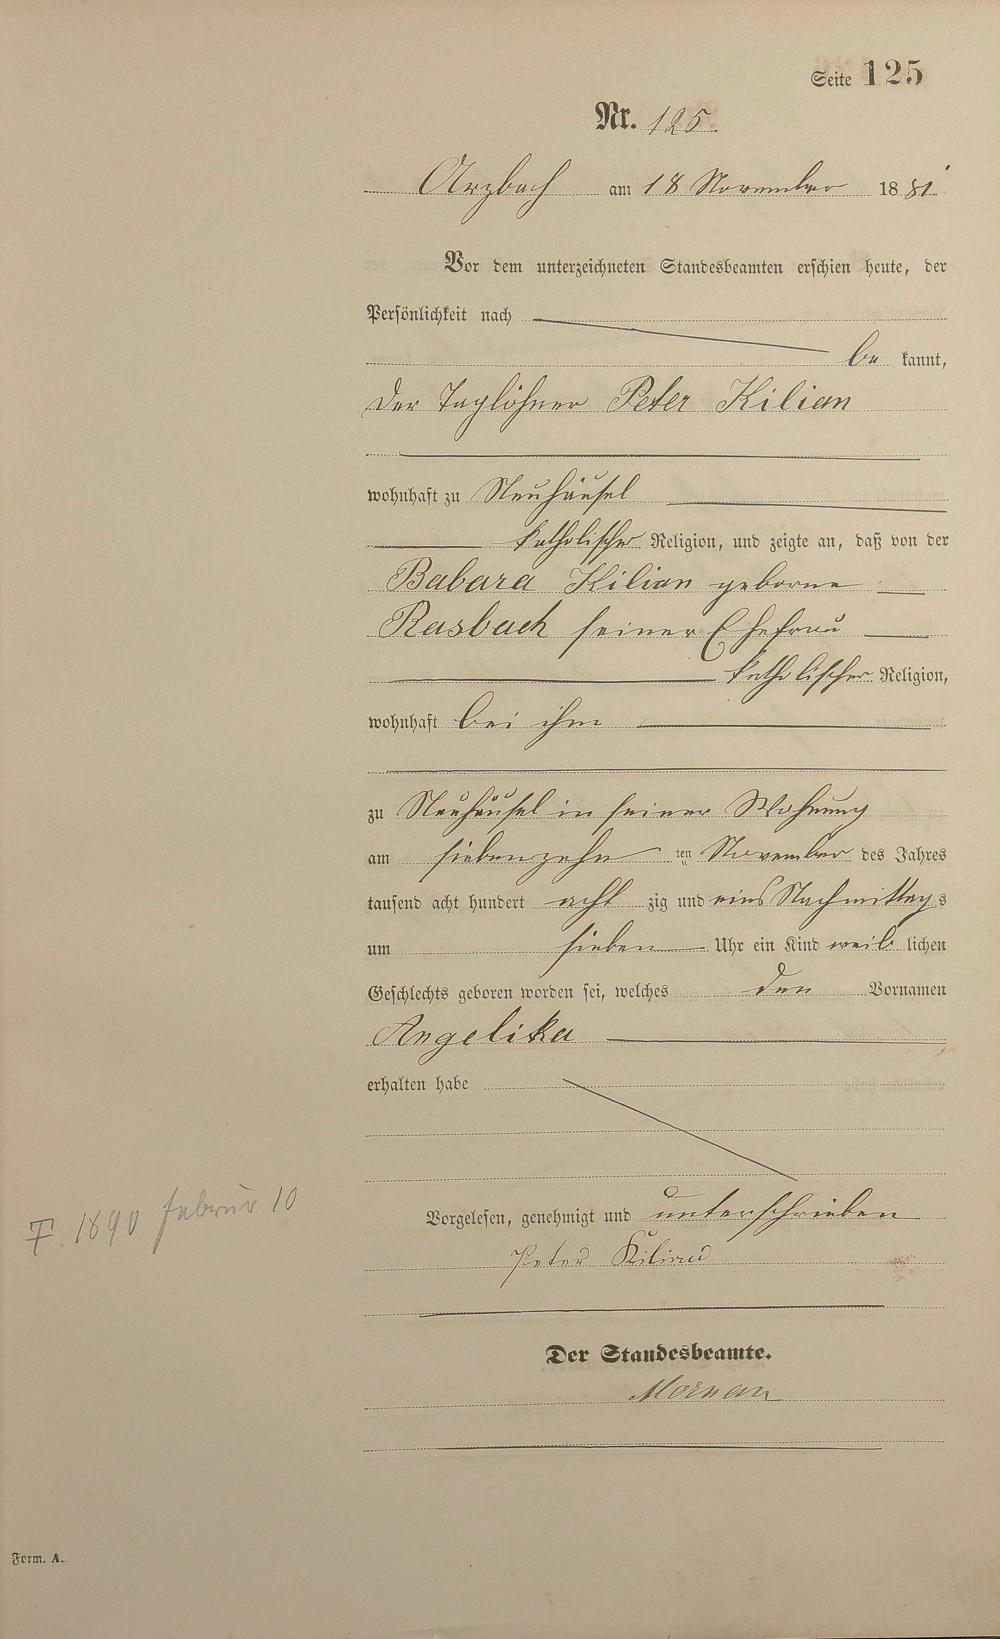 Seite 125
Nr. 125.
Arzbach am 18 November 1881
Vor dem unterzeichneten Standesbeamten erschien heute, der
Persönlichkeit nach
be kannt,
der Taglöhner Peter Kilian
wohnhaft zu Neuhäusel
katholischer Religion, und zeigte an, daß von der
Babara Kilian geborne
Rasbach seiner Ehefrau
katholischer Religion,
wohnhaft bei ihm
zu Neuhäusel in seiner Wohnung
am siebenzehn ten November des Jahres
tausend acht hundert acht zig und eins Nachmittags
um sieben Uhr ein Kind weib lichen
Geschlechts geboren worden sei, welches den Vornamen
Angelika
erhalten habe
Vorgelesen, genehmigt und unterschrieben
Peter Kilian
Der Standesbeamte.
1890 Februar 10
Form. A.